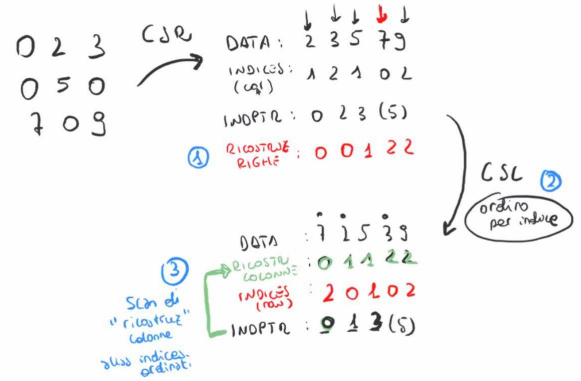 0 2 3
0 5 0
7 0 9
CSR
DATA : 2 3 5 7 9
INDICES : 1 2 1 0 2
(col)
INDPTR : 0 2 3 (5)
1 RICOSTRUE : 0 0 1 2 2
RIGHE
CSC 2
ordino
per indice
DATA : 7 2 5 3 9
RICOSTR : 0 1 1 2 2
COLONNE
INDICES : 2 0 1 0 2
(row)
INDPTR : 0 1 3 (5)
3
Scan di
"ricostruz"
colonne
indices
ordinati